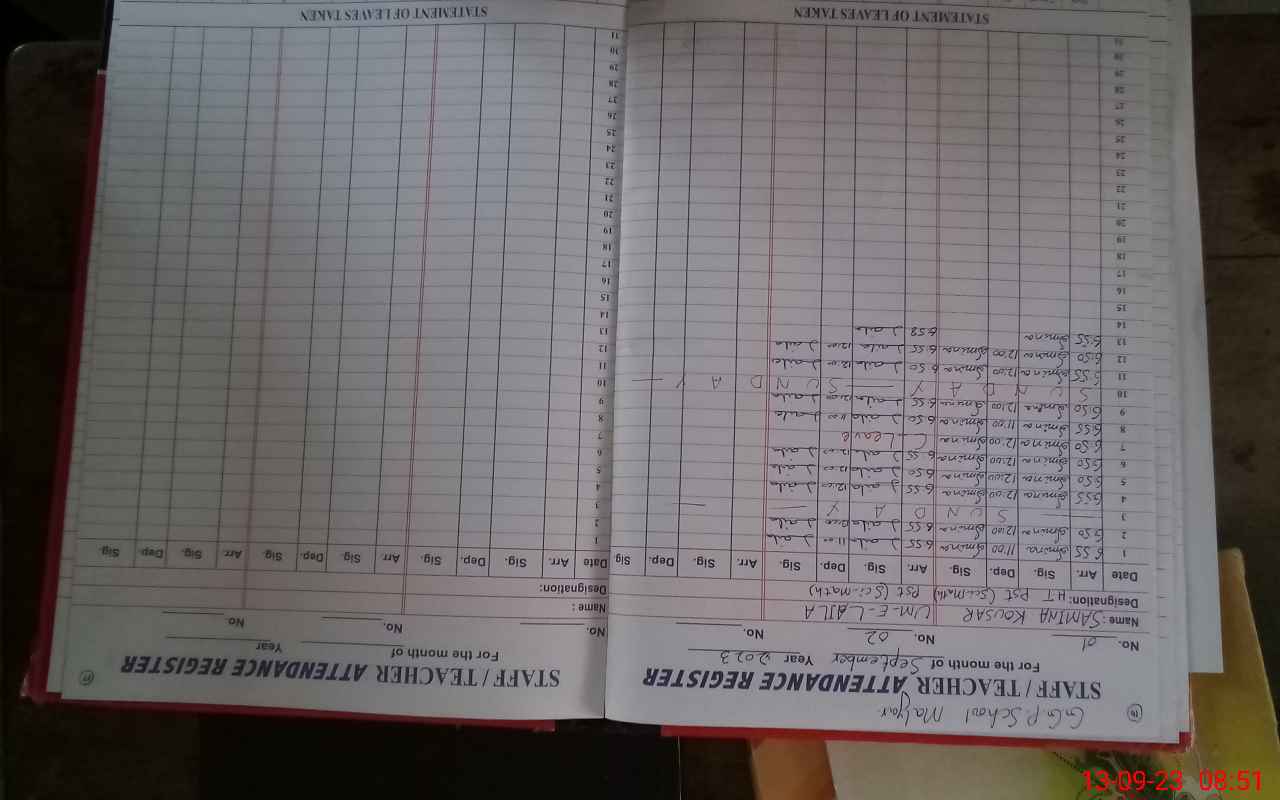 G.G.P. School Malyar
STAFF / TEACHER ATTENDANCE REGISTER
For the month of September Year 2023
No. 01 No. 02 No.
Name: SAMINA KOUSAR UM-E-LAILA
Designation: HT PST (Sci-math) PST (Sci-math)
Date Arr. Sig. Dep. Sig. Arr. Sig. Dep. Sig. Arr. Sig. Dep. Sig.
1 6:55 Smina 11:00 Smina 6:55 Laila 11:00 Laila
2 6:50 Smina 12:00 Smina 6:55 Laila 12:00 Laila
3 S U N D A Y
4 6:55 Smina 12:00 Smina 6:55 Laila 12:00 Laila
5 6:50 Smina 12:00 Smina 6:50 Laila 12:00 Laila
6 6:50 Smina 12:00 Smina 6:55 Laila 12:00 Laila
7 6:50 Smina 12:00 Smina C-Leave
8 6:55 Smina 11:00 Smina 6:50 Laila 11:00 Laila
9 6:50 Smina 12:00 Smina 6:55 Laila 12:00 Laila
10 S U N D A Y S U N D A Y
11 6:55 Smina 12:00 Smina 6:50 Laila 12:00 Laila
12 6:50 Smina 12:00 Smina 6:55 Laila 12:00 Laila
13 6:55 Smina 6:58 Laila
14
15
16
17
18
19
20
21
22
23
24
25
26
27
28
29
30
31
STATEMENT OF LEAVES TAKEN
STAFF / TEACHER ATTENDANCE REGISTER
For the month of Year
No. No. No.
Name :
Designation:
Date Arr. Sig. Dep. Sig. Arr. Sig. Dep. Sig. Arr. Sig. Dep. Sig.
1
2
3
4
5
6
7
8
9
10
11
12
13
14
15
16
17
18
19
20
21
22
23
24
25
26
27
28
29
30
31
STATEMENT OF LEAVES TAKEN
13-09-23 08:51